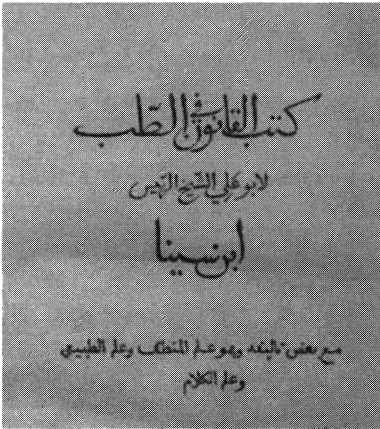 كتب القانون في الطب
لابو علي الشيخ الرئيس
ابن سينا
مع بعض تاليفه وهو علم المنطق وعلم الطبيعي
وعلم الكلام